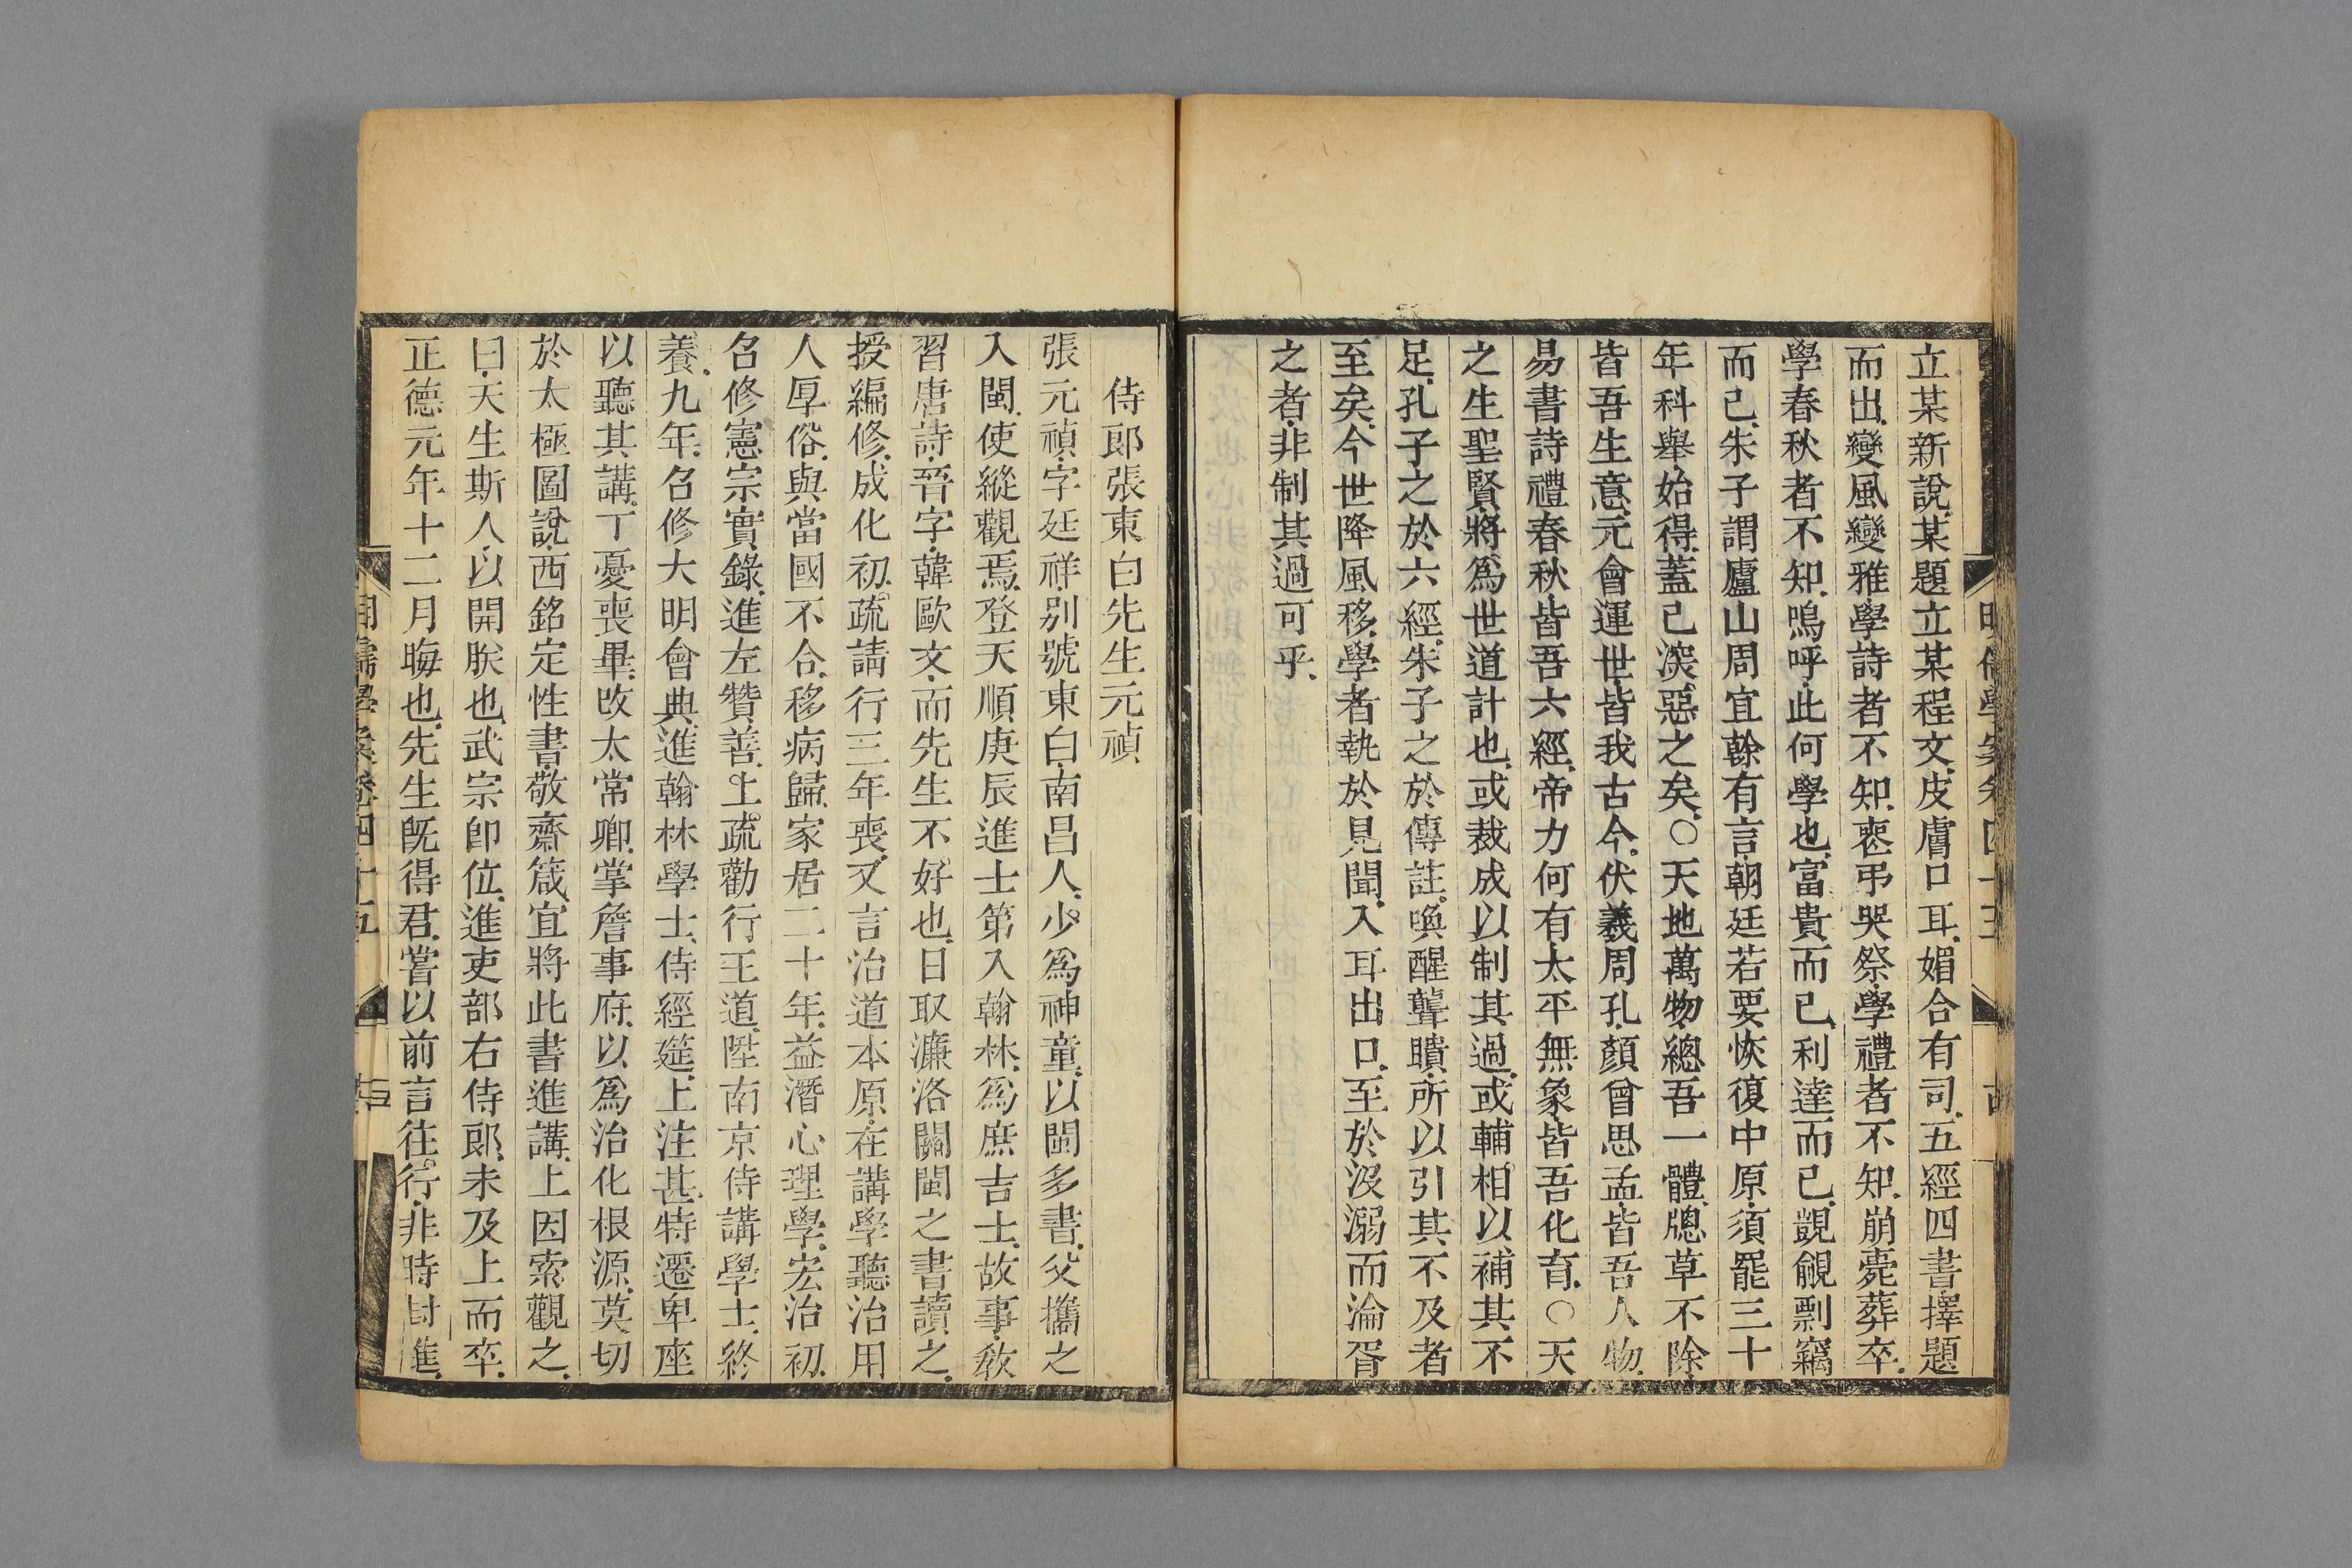 立某新說某題立某程文皮膚口耳媚合有司五經四書擇題
而出變風變雅學詩者不知喪弔哭祭學禮者不知崩薨葬卒
學春秋者不知嗚呼此何學也富貴而已利達而已覬覦剽竊
而已朱子謂廬山周宜榦有言朝廷若要恢復中原須罷三十
年科舉始得蓋已深惡之矣○天地萬物總吾一體牕草不除
皆吾生意元會運世皆我古今伏羲周孔顏曾思孟皆吾人物
易書詩禮春秋皆吾六經帝力何有太平無象皆吾化育○天
之生聖賢將爲世道計也或裁成以制其過或輔相以補其不
足孔子之於六經朱子之於傳註喚醒聾瞶所以引其不及者
至矣今世降風移學者執於見聞入耳出口至於沒溺而淪胥
之者非制其過可乎
侍郎張東白先生元禎
張元禎字廷祥別號東白南昌人少爲神童以閩多書父攜之
入閩使縱觀焉登天順庚辰進士第入翰林爲庶吉士故事敎
習唐詩晉字韓歐文而先生不好也日取濂洛關閩之書讀之
授編修成化初疏請行三年喪又言治道本原在講學聽治用
人厚俗與當國不合移病歸家居二十年益潛心理學宏治初
召修憲宗實錄進左贊善上疏勸行王道陞南京侍講學士終
養九年召修大明會典進翰林學士侍經筵上注甚特遷卑座
以聽其講丁憂喪畢改太常卿掌詹事府以爲治化根源莫切
於太極圖說西銘定性書敬齋箴宜將此書進講上因索觀之
曰天生斯人以開朕也武宗卽位進吏部右侍郎未及上而卒
正德元年十二月晦也先生旣得君嘗以前言往行非時封進
明儒學案卷四十五